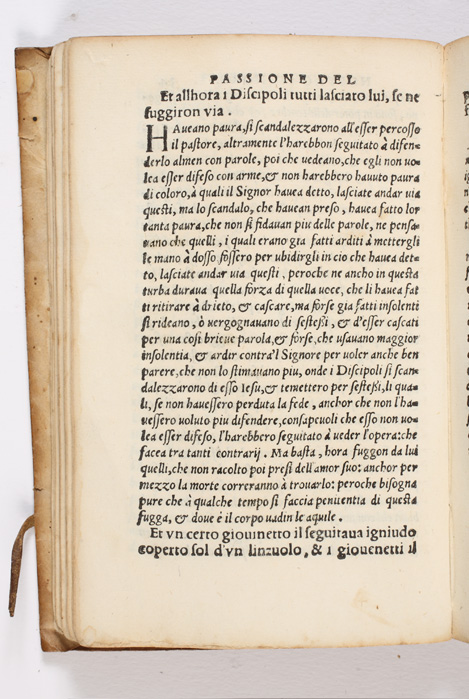 PASSIONE DEL
Et allhora i Discipoli tutti lasciato lui, se ne
fuggiron via.
HAueano paura, si scandalezzarono all'esser percosso
il pastore, altramente l'harebbon seguitato à difen=
derlo almen con parole, poi che uedeano, che egli non uo=
lea esser difeso con arme, & non harebbero hauuto paura
di coloro, à quali il Signor hauea detto, lasciate andar uia
questi, ma lo scandalo, che hauean preso, hauea fatto lor
tanta paura, che non si fidauan piu delle parole, ne pensa=
uano che quelli, i quali erano gia fatti arditi à mettergli
le mano à dosso, fossero per ubidirgli in cio che hauea det=
to, lasciate andar uia questi, peroche ne ancho in questa
turba duraua quella forza di quella uoce, che li hauea fat
ti ritirare à drieto, & cascare, ma forse gia fatti insolenti
si rideano, ò vergognauano di sestessi, & d'esser cascati
per una cosi brieue parola, & forse, che usauano maggior
insolentia, & ardir contra'l Signore per uoler anche ben
parere, che non lo stimauano piu, onde i Discipoli si scan=
dalezzarono di esso Iesu, & temettero per sestessi, li qua=
li, se non hauessero perduta la fede, anchor che non l'ha=
uessero uoluto piu difendere, consapeuoli che esso non uo=
lea esser difeso, l'harebbero seguitato à ueder l'opera: che
facea tra tanti contrarij. Ma basta, hora fuggon da lui
quelli, che non racolto poi presi dell'amor suo: anchor per
mezzo la morte correranno à trouarlo: peroche bisogna
pure che à qualche tempo si faccia penitentia di questa
fugga, & doue è il corpo uadin le aquile.
Et vn certo giouinetto il seguitaua igniudo
coperto sol d'vn linzuolo, & i giouenetti il